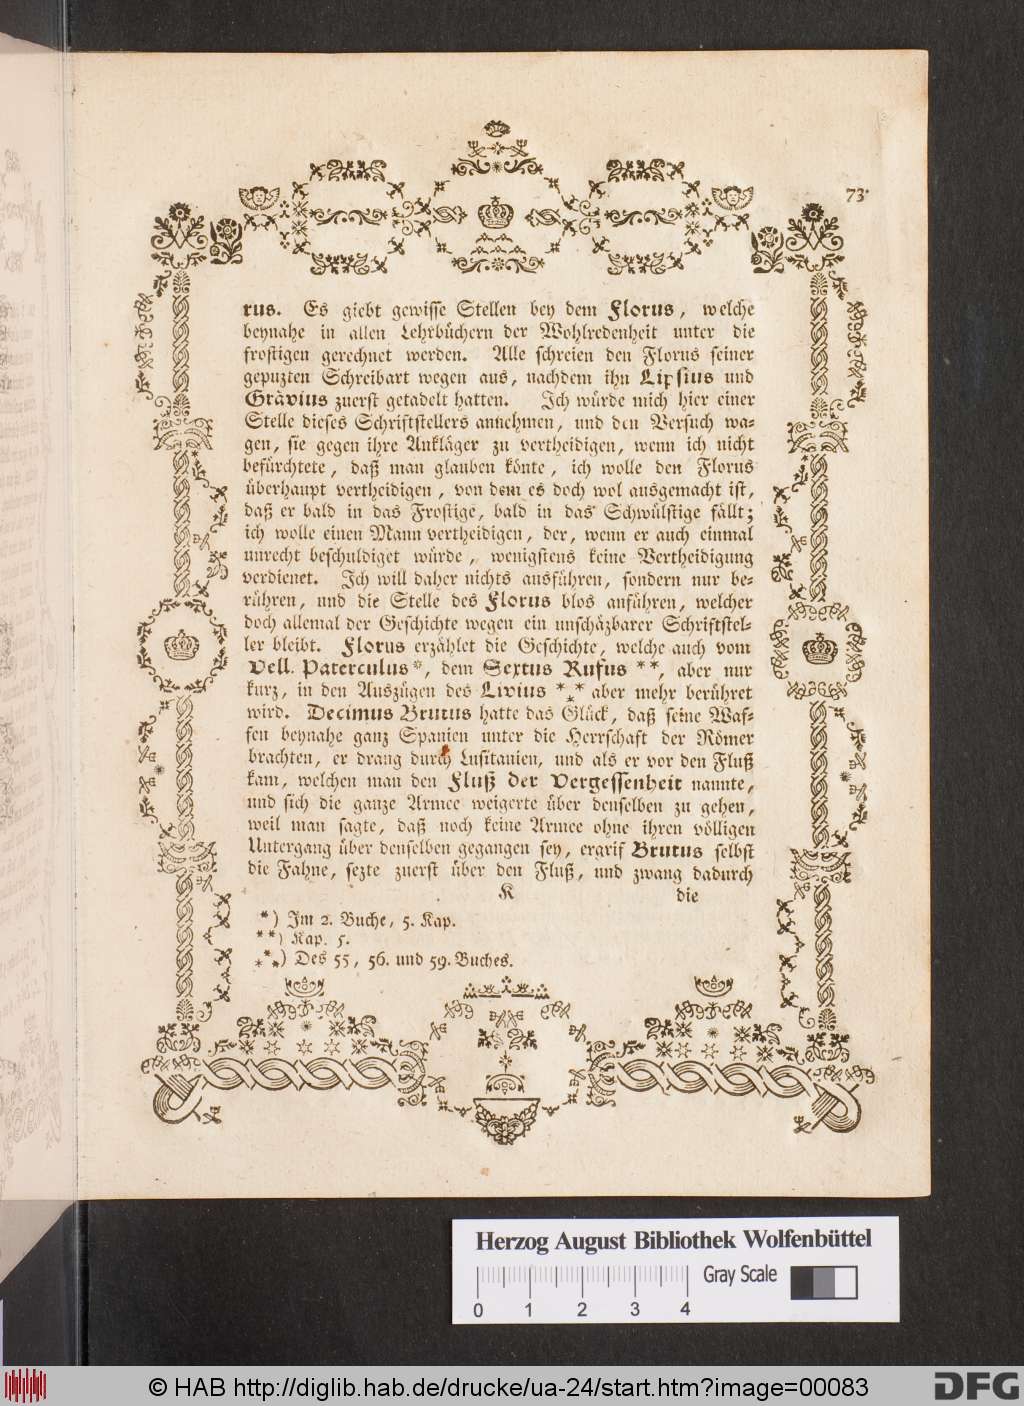 73.
rus. Es giebt gewisse Stellen bey dem Florus, welche
beynahe in allen Lehrbüchern der Wohlredenheit unter die
frostigen gerechnet werden. Alle schreien den Florus seiner
gepuzten Schreibart wegen aus, nachdem ihn Lipsius und
Grävius zuerst getadelt hatten. Ich würde mich hier einer
Stelle dieses Schriftstellers annehmen, und den Versuch wa-
gen, sie gegen ihre Ankläger zu vertheidigen, wenn ich nicht
befürchtete, daß man glauben könte, ich wolle den Florus
überhaupt vertheidigen, von dem es doch wol ausgemacht ist,
daß er bald in das Frostige, bald in das Schwülstige fällt;
ich wolle einen Mann vertheidigen, der, wenn er auch einmal
unrecht beschuldiget würde, wenigstens keine Vertheidigung
verdienet. Ich will daher nichts ausführen, sondern nur be-
rühren, und die Stelle des Florus blos anführen, welcher
doch allemal der Geschichte wegen ein unschäzbarer Schriftstel-
ler bleibt. Florus erzählet die Geschichte, welche auch vom
Vell. Paterculus*, dem Sextus Rufus **, aber nur
kurz, in den Auszügen des Livius *** aber mehr berühret
wird. Decimus Brutus hatte das Glück, daß seine Waf-
fen beynahe ganz Spanien unter die Herrschaft der Römer
brachten, er drang durch Lusitanien, und als er vor den Fluß
kam, welchen man den Fluß der Vergessenheit nannte,
und sich die ganze Armee weigerte über denselben zu gehen,
weil man sagte, daß noch keine Armee ohne ihren völligen
Untergang über denselben gegangen sey, ergrif Brutus selbst
die Fahne, sezte zuerst über den Fluß, und zwang dadurch
K die
*) Im 2. Buche, 5. Kap.
**) Kap. 5.
***) Des 55, 56. und 59. Buches.
Herzog August Bibliothek Wolfenbüttel
Gray Scale
0 1 2 3 4
© HAB http://diglib.hab.de/drucke/ua-24/start.htm?image=00083
DFG